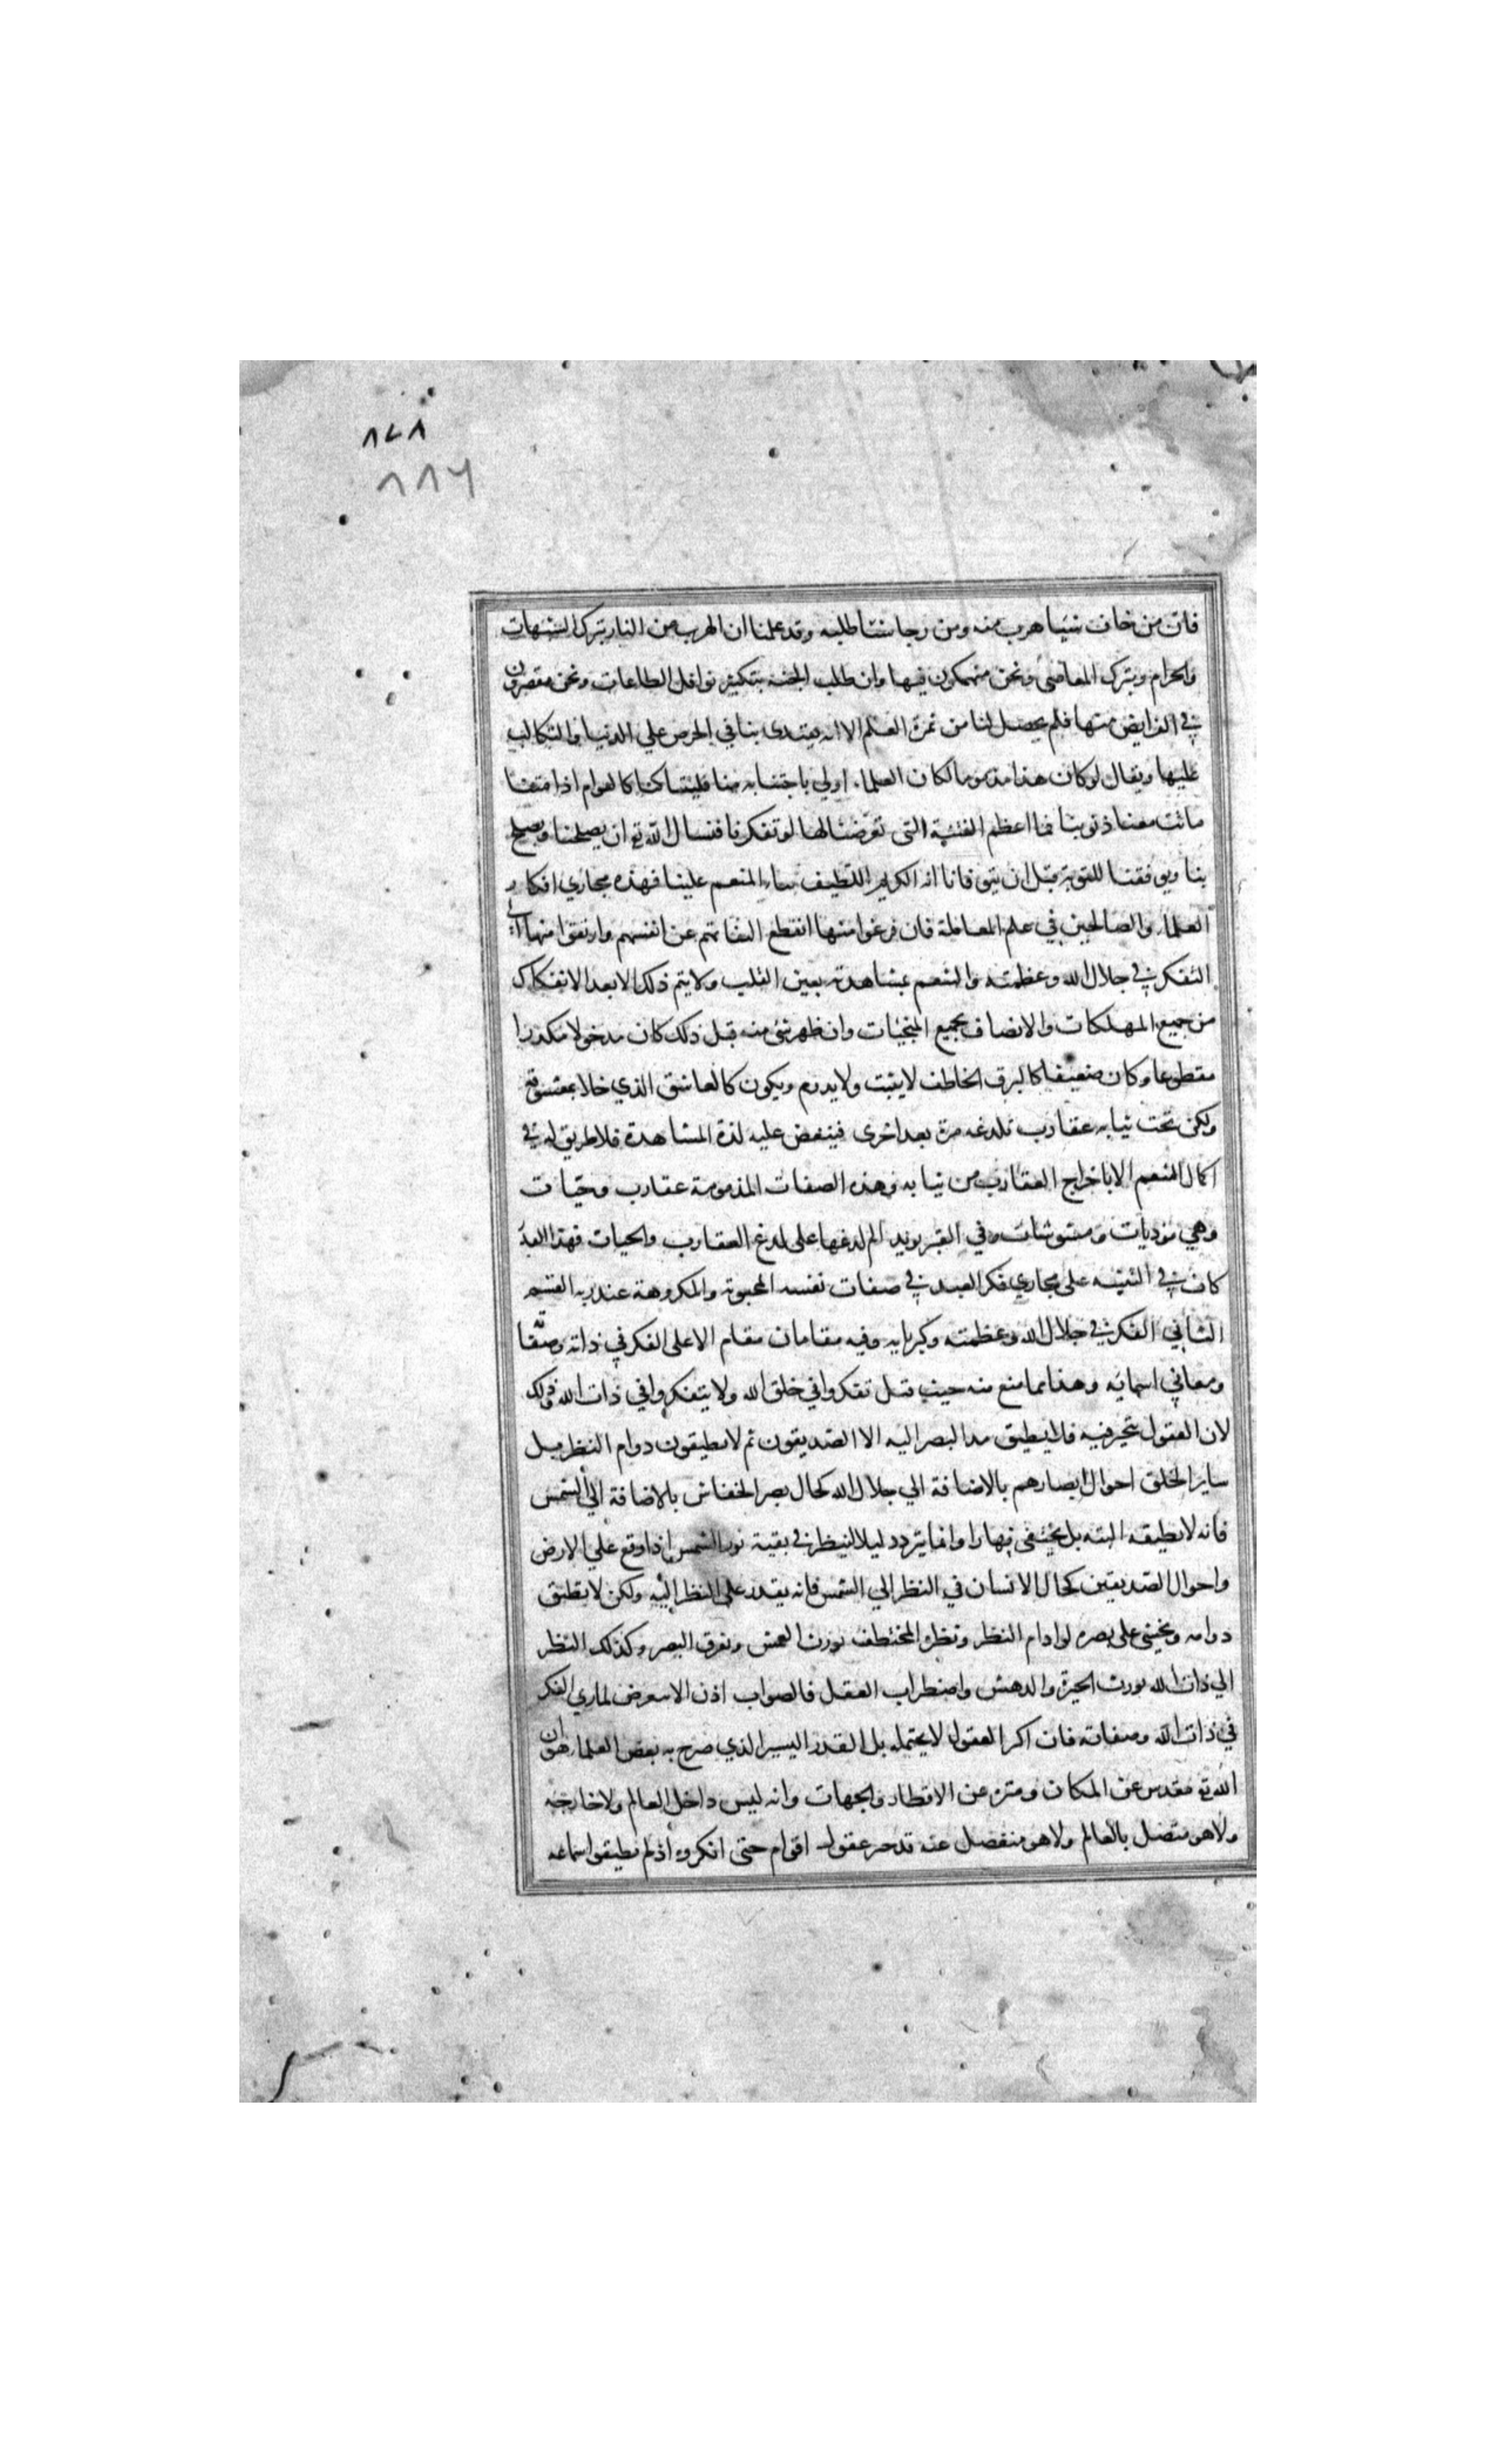 ٨٧٨
٨٨٦
فان من خاف شيئا هرب منه ومن رجا شئا طلبه وقد علمنا ان الهرب من النار بترك الشبهات
والحرام وبترك المعاصي ونحن منهمكون فيها وان طلب الجنه بتكثير نوافل الطاعات ونحن مقصرون
في الفرايض منها فلم يحصل لنا من ثمرة العلم الا انه يقتدى بنا في الحرص علي الدنيا والتكالب
عليها ويقال لو كان هذا مذموما لكان العلماء اولي باجتنابه منا فليتنا كنا كالعوام اذا متنا
ماتت معنا ذنوبنا فما اعظم الفتنة التى تعرضنا لها لو تفكرنا فنسال الله تع ان يصلحنا ويصلح
بنا ويوفقنا للتوبة قبل ان يتوفانا انه الكريم اللطيف بنا المنعم علينا فهذه مجاري افكار
العلماء والصالحين في علم المعاملة فان فرغوا منها انقطع التفاتهم عن انفسهم وارتقوا منها الى
التفكر في جلال الله وعظمته والتنعم بمشاهدته بعين القلب ولا يتم ذلك الا بعد الانفكاك
من جميع المهلكات والاتصاف بجميع المنجيات وان ظهر شئ منه قبل ذلك كان مدخولا مكدرا
مقطوعا وكان ضعيفا كالبرق الخاطف لا يثبت ولا يدوم ويكون كالعاشق الذي خلا بمعشوقه
ولكن تحت ثيابه عقارب تلدغه مرة بعد اخرى فينغص عليه لذة المشاهدة فلا طريق له في
اكمال التنعم الا باخراج العقارب من ثيابه وهذه الصفات المذمومة عقارب وحيات
وهي موذيات ومشوشات وفي القبر يزيد الم لدغها على لدغ العقارب والحيات فهذا القدر
كاف في التنبيه على مجاري فكر العبد في صفات نفسه المحبوبة والمكروهة عند ربه القسم
الثاني الفكر في جلال الله وعظمته وكبريايه وفيه مقامان مقام الاعلى الفكر في ذاته وصفاته
ومعاني اسمائه وهذا مما منع منه حيث قيل تفكروا في خلق الله ولا يتفكروا في ذات الله وذلك
لان العقول تتحير فيه فلا يطيق مد البصر اليه الا الصديقون ثم لا يطيقون دوام النظر بل
ساير الخلق احوال ابصارهم بالاضافة الي جلال الله كحال بصر الخفاش بالاضافة الي الشمس
فانه لا يطيقه البته بل يختفى نهارا وانما يتردد ليلا لينظر في بقية نور الشمس اذا وقع علي الارض
واحوال الصديقين كحال الانسان في النظر الي الشمس فانه يقدر على النظر اليه ولكن لا يطيق
دوامه ويخشى على بصره لو ادام النظر ونظره المختطف يورث العمش وتفرق البصر وكذلك النظر
الي ذات الله يورث الحيرة والدهش واضطراب العقل فالصواب اذن الا يتعرض لمجاري الفكر
في ذات الله وصفاته فان اكثر العقول لا يحتمله بل القدر اليسير الذي صرح به بعض العلماء هو ان
الله تع مقدس عن المكان ومنزه عن الاقطار والجهات وانه ليس داخل العالم ولا خارجه
ولا هو متصل بالعالم ولا هو منفصل عنه قد حير عقول اقوام حتى انكروه اذ لم يطيقوا سماعه